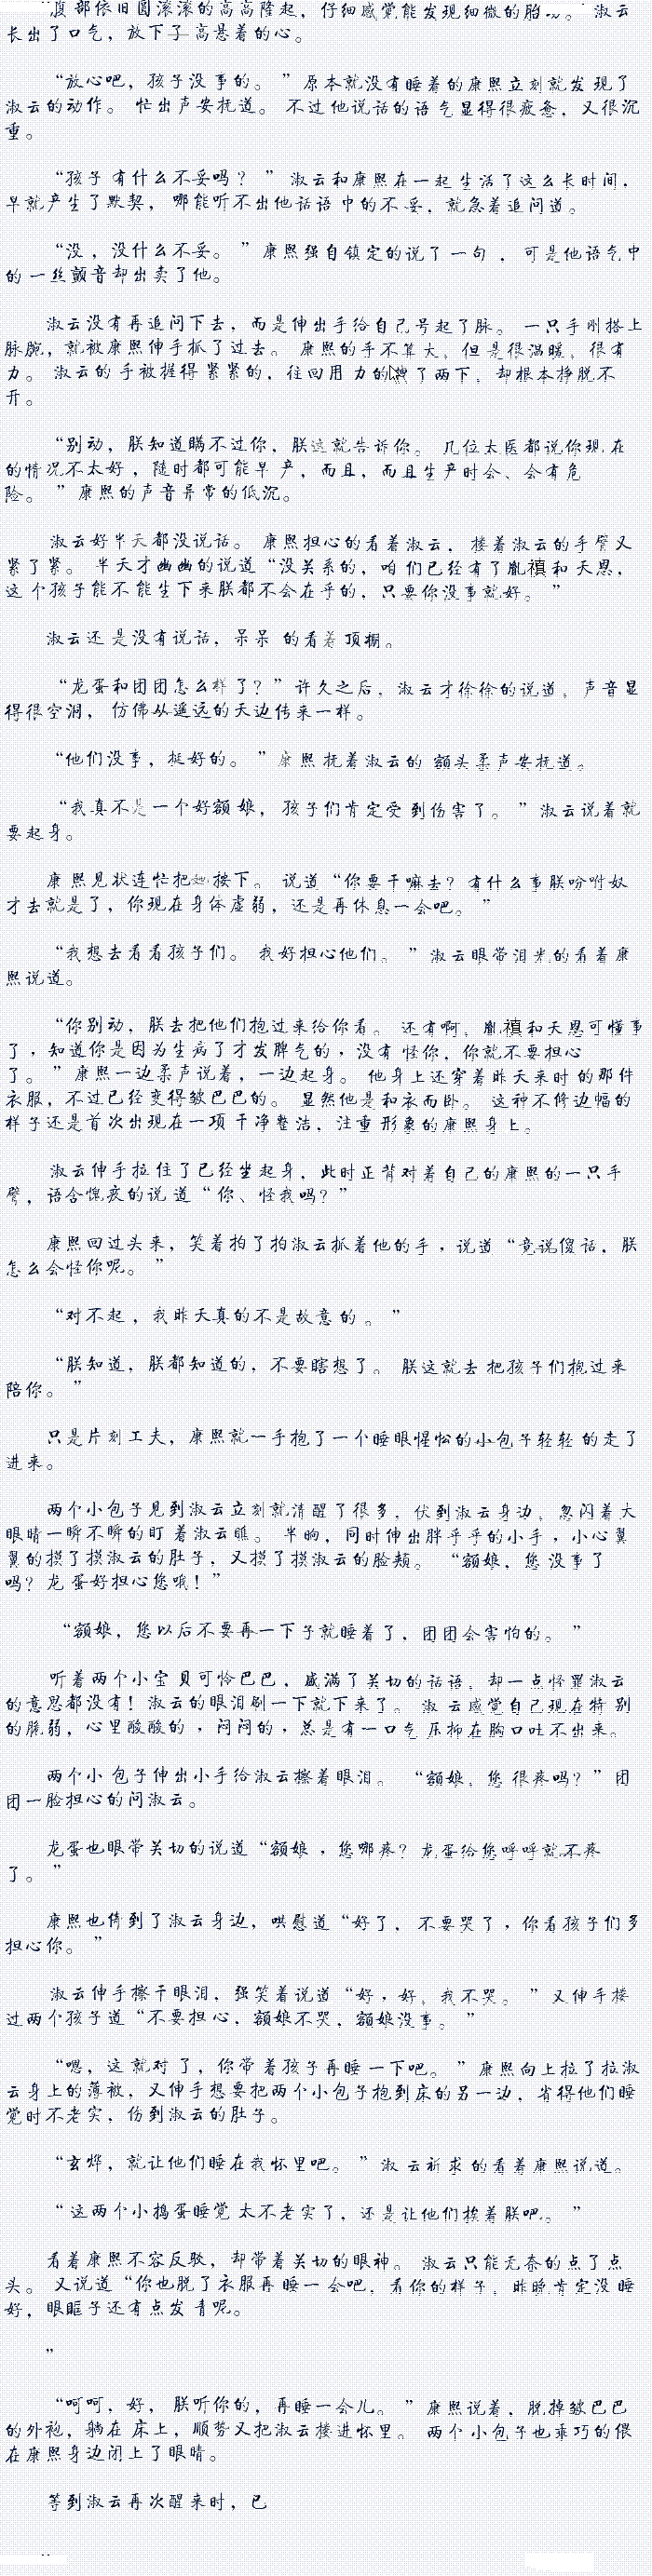 腹部依旧圆滚滚的高高隆起，仔细感觉能发现细微的胎。淑云
长出了口气，放下了高悬着的心。
“放心吧，孩子没事的。”原本就没有睡着的康熙立刻就发现了
淑云的动作。忙出声安抚道。不过他说话的语气显得很疲惫，又很沉
重。
“孩子有什么不妥吗？”淑云和康熙在一起生活了这么长时间，
早就产生了默契，哪能听不出他话语中的不妥，就急着追问道。
“没，没什么不妥。”康熙强自镇定的说了一句，可是他语气中
的一丝颤音却出卖了他。
淑云没有再追问下去，而是伸出手给自己号起了脉。一只手刚搭上
脉腕，就被康熙伸手抓了过去。康熙的手不算大，但是很温暖，很有
力。淑云的手被握得紧紧的，往回用力的拽了两下，却根本挣脱不
开。
“别动，朕知道瞒不过你，朕这就告诉你。几位太医都说你现在
的情况不太好，随时都可能早产，而且，而且生产时会、会有危
险。”康熙的声音异常的低沉。
淑云好半天都没说话。康熙担心的看着淑云，搂着淑云的手臂又
紧了紧。半天才幽幽的说道“没关系的，咱们已经有了胤禛和天恩，
这个孩子能不能生下来朕都不会在乎的，只要你没事就好。”
淑云还是没有说话，呆呆的看着顶棚。
“龙蛋和团团怎么样了？”许久之后，淑云才徐徐的说道，声音显
得很空洞，仿佛从遥远的天边传来一样。
“他们没事，挺好的。”康熙抚着淑云的额头柔声安抚道。
“我真不是一个好额娘，孩子们肯定受到伤害了。”淑云说着就
要起身。
康熙见状连忙把她按下。说道“你要干嘛去？有什么事朕吩咐奴
才去就是了，你现在身体虚弱，还是再休息一会吧。”
“我想去看看孩子们。我好担心他们。”淑云眼带泪光的看着康
熙说道。
“你别动，朕去把他们抱过来给你看。还有啊，胤禛和天恩可懂事
了，知道你是因为生病了才发脾气的，没有怪你，你就不要担心
了。”康熙一边柔声说着，一边起身。他身上还穿着昨天来时的那件
衣服，不过已经变得皱巴巴的。显然他是和衣而卧。这种不修边幅的
样子还是首次出现在一项干净整洁，注重形象的康熙身上。
淑云伸手拉住了已经坐起身，此时正背对着自己的康熙的一只手
臂，语含愧疚的说道“你、怪我吗？”
康熙回过头来，笑着拍了拍淑云抓着他的手，说道“竟说傻话，朕
怎么会怪你呢。”
“对不起，我昨天真的不是故意的。”
“朕知道，朕都知道的，不要瞎想了。朕这就去把孩子们抱过来
陪你。”
只是片刻工夫，康熙就一手抱了一个睡眼惺忪的小包子轻轻的走了
进来。
两个小包子见到淑云立刻就清醒了很多，伏到淑云身边，忽闪着大
眼睛一瞬不瞬的盯着淑云瞧。半晌，同时伸出胖乎乎的小手，小心翼
翼的摸了摸淑云的肚子，又摸了摸淑云的脸颊。“额娘，您没事了
吗？龙蛋好担心您哦！”
“额娘，您以后不要再一下子就睡着了，团团会害怕的。”
听着两个小宝贝可怜巴巴，盛满了关切的话语，却一点怪罪淑云
的意思都没有！淑云的眼泪刷一下就下来了。淑云感觉自己现在特别
的脆弱，心里酸酸的，闷闷的，总是有一口气压抑在胸口吐不出来。
两个小包子伸出小手给淑云擦着眼泪。“额娘，您很疼吗？”团
团一脸担心的问淑云。
龙蛋也眼带关切的说道“额娘，您哪疼？龙蛋给您呼呼就不疼
了。”
康熙也倚到了淑云身边，哄慰道“好了，不要哭了，你看孩子们多
担心你。”
淑云伸手擦干眼泪，强笑着说道“好，好，我不哭。”又伸手搂
过两个孩子道“不要担心，额娘不哭，额娘没事。”
“嗯，这就对了，你带着孩子再睡一下吧。”康熙向上拉了拉淑
云身上的薄被，又伸手想要把两个小包子抱到床的另一边，省得他们睡
觉时不老实，伤到淑云的肚子。
“玄烨，就让他们睡在我怀里吧。”淑云祈求的看着康熙说道。
“这两个小捣蛋睡觉太不老实了，还是让他们挨着朕吧。”
看着康熙不容反驳，却带着关切的眼神。淑云只能无奈的点了点
头。又说道“你也脱了衣服再睡一会吧，看你的样子，昨晚肯定没睡
好，眼眶子还有点发青呢。
”
“呵呵，好，朕听你的，再睡一会儿。”康熙说着，脱掉皱巴巴
的外袍，躺在床上，顺势又把淑云搂进怀里。两个小包子也乖巧的偎
在康熙身边闭上了眼睛。
等到淑云再次醒来时，已